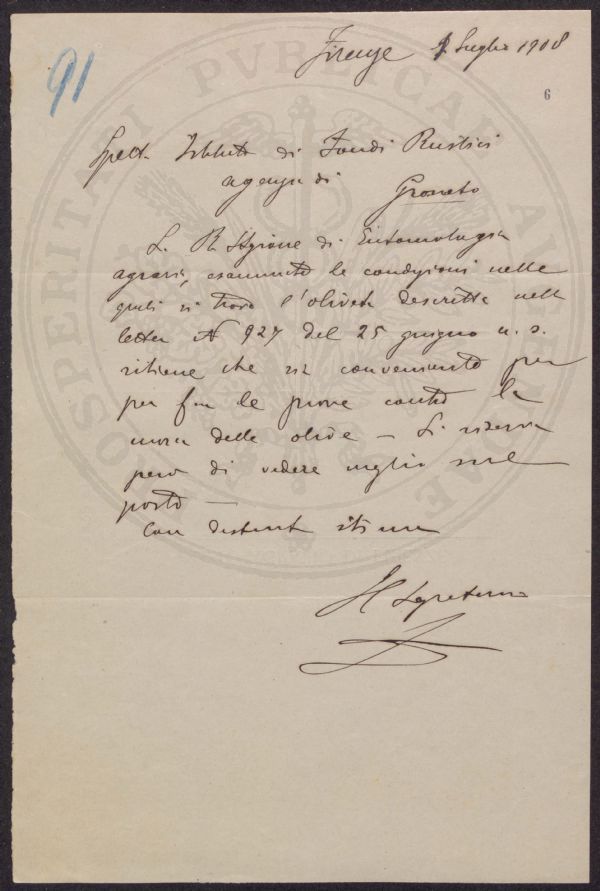 91
Firenze 1 Luglio 1908
6
Spett. Istituto di Fondi Rustici
Agenzia di Grosseto
La R. Stazione di Entomologia
agraria, esaminate le condizioni nelle
quali si trova l'oliveta descritta nella
lettera N 927 del 25 giugno u. s.
ritiene che sia conveniente per
per fare le prove contro la
mosca delle olive – Si riserva
però di vedere meglio sul
posto –
Con distinta stima
Il Segretario
PROSPERITATI PUBLICAE AUGENDAE